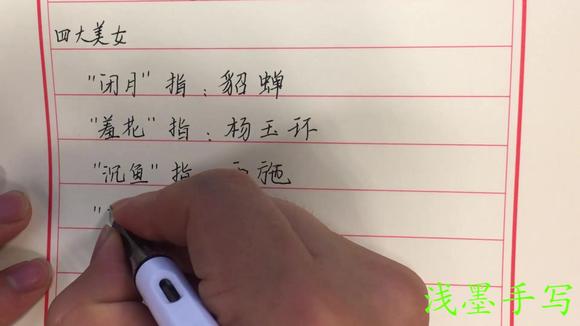 四大美女
"闭月"指:貂蝉
"羞花"指:杨玉环
"沉鱼"指 施
"
浅墨手写